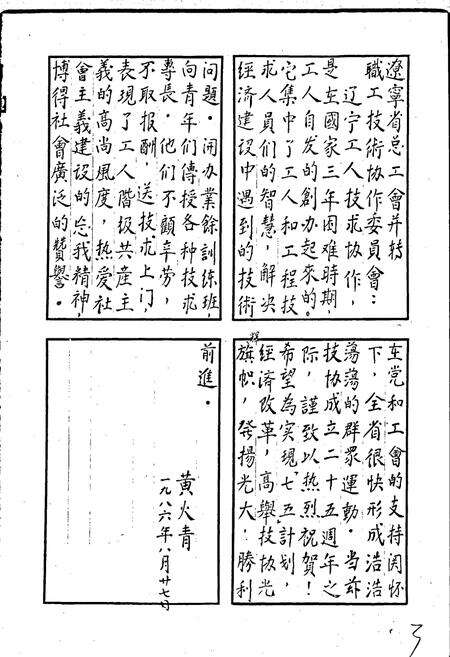 遼寧省总工會并转
職工技術协作委員會：
辽宁工人技术协作，
是在國家三年困难時期，
工人自发的創办起來的。
它集中了工人和工程技
术人員们的智慧，解决
經济建設中遇到的技術
问题．开办業餘訓练班，
向青年们傳授各种技术
專長．他们不顧辛劳，
不取报酬，送技术上门，
表現了工人階级共産主
義的高尚風度，热爱社
會主義建設的忘我精神，
博得社會廣泛的贊譽．
在党和工會的支持関怀
下，全省很快形成浩浩
蕩蕩的群眾運動．当兹
技协成立二十五週年之
际，謹致以热烈祝賀！
希望為实現"七五"計划，
經济改革，高舉技协光
輝旗幟，發揚光大．勝利
前進．
黄火青
一九八六年八月廿七日
3